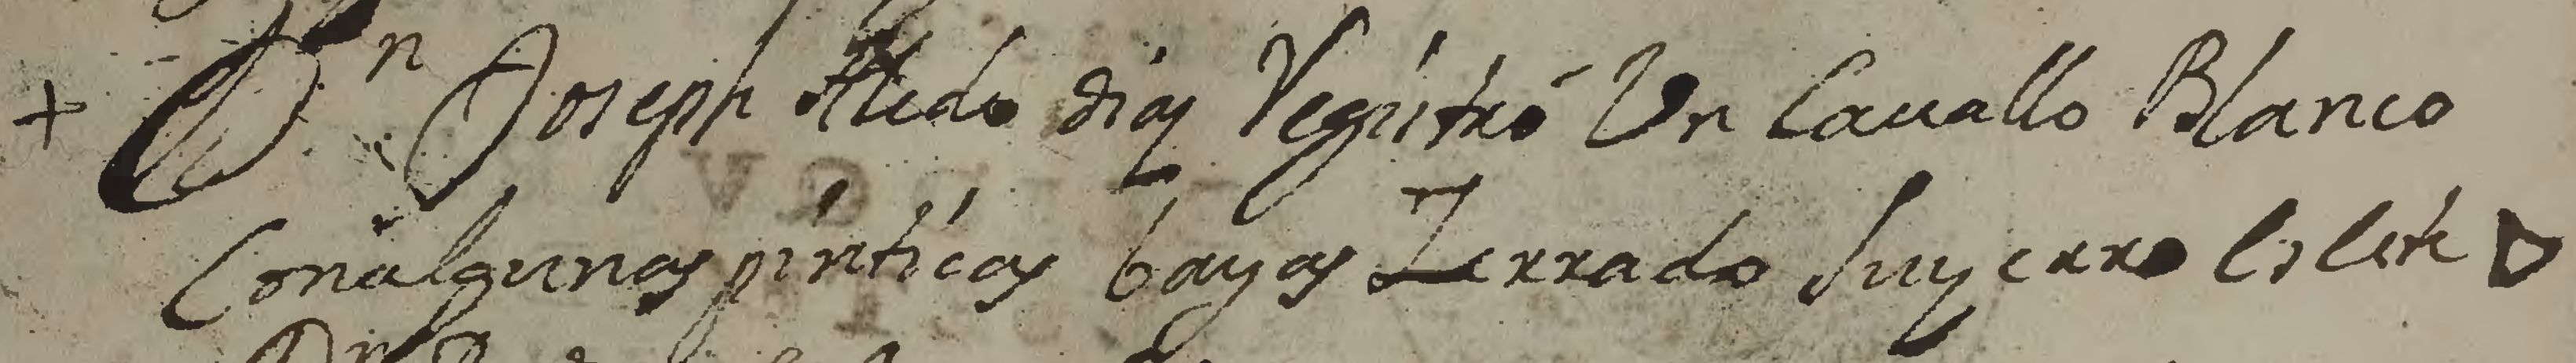 + Dn Joseph Aledo dias Regristró Un Cauallo Blanco
Con algunas pinticas bayas Zerrado Su yerro es este